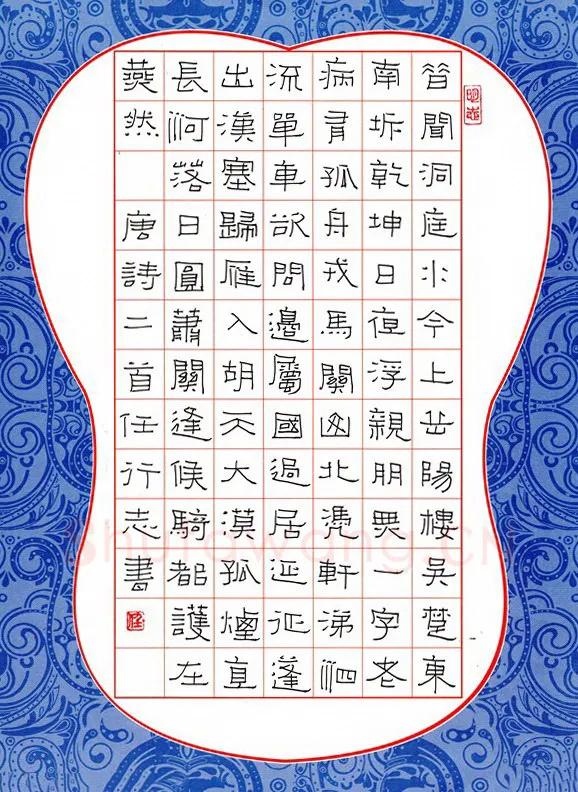 昔聞洞庭水今上岳陽樓吳楚東
南坼乾坤日夜浮親朋畏一字老
病有孤舟戎馬關山北憑軒涕泗
流單車欲問邊屬國過居延征蓬
出漢塞歸雁入胡天大漠孤煙直
長河落日圓蕭關逢候騎都護在
燕然 唐詩二首任行志書
Shufawang.CN